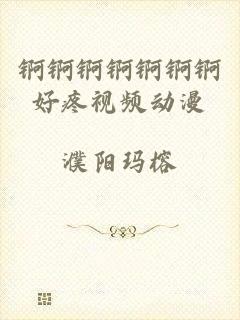 锕锕锕锕锕锕锕
好疼视频动漫
濮阳玛榕